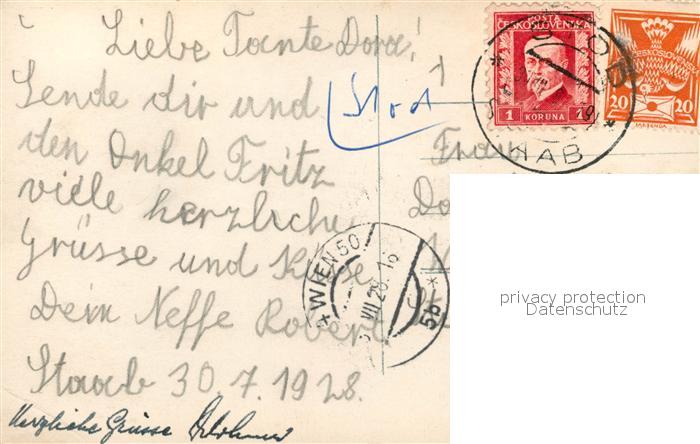 Liebe Tante Dora!
Sende dir und
den Onkel Fritz
viele herzliche
Grüsse und Küsse
Dein Neffe Robert
Staab 30.7.1928.
Herzliche Grüsse
Stod
Frau
POSTA
ČESKOSLOVENSKÁ
1 KORUNA 1
ČESKOSLOVENSKÁ
20 20
STOD
STAAB
*WIEN 50*
VII 28.16
5b
privacy protection
Datenschutz